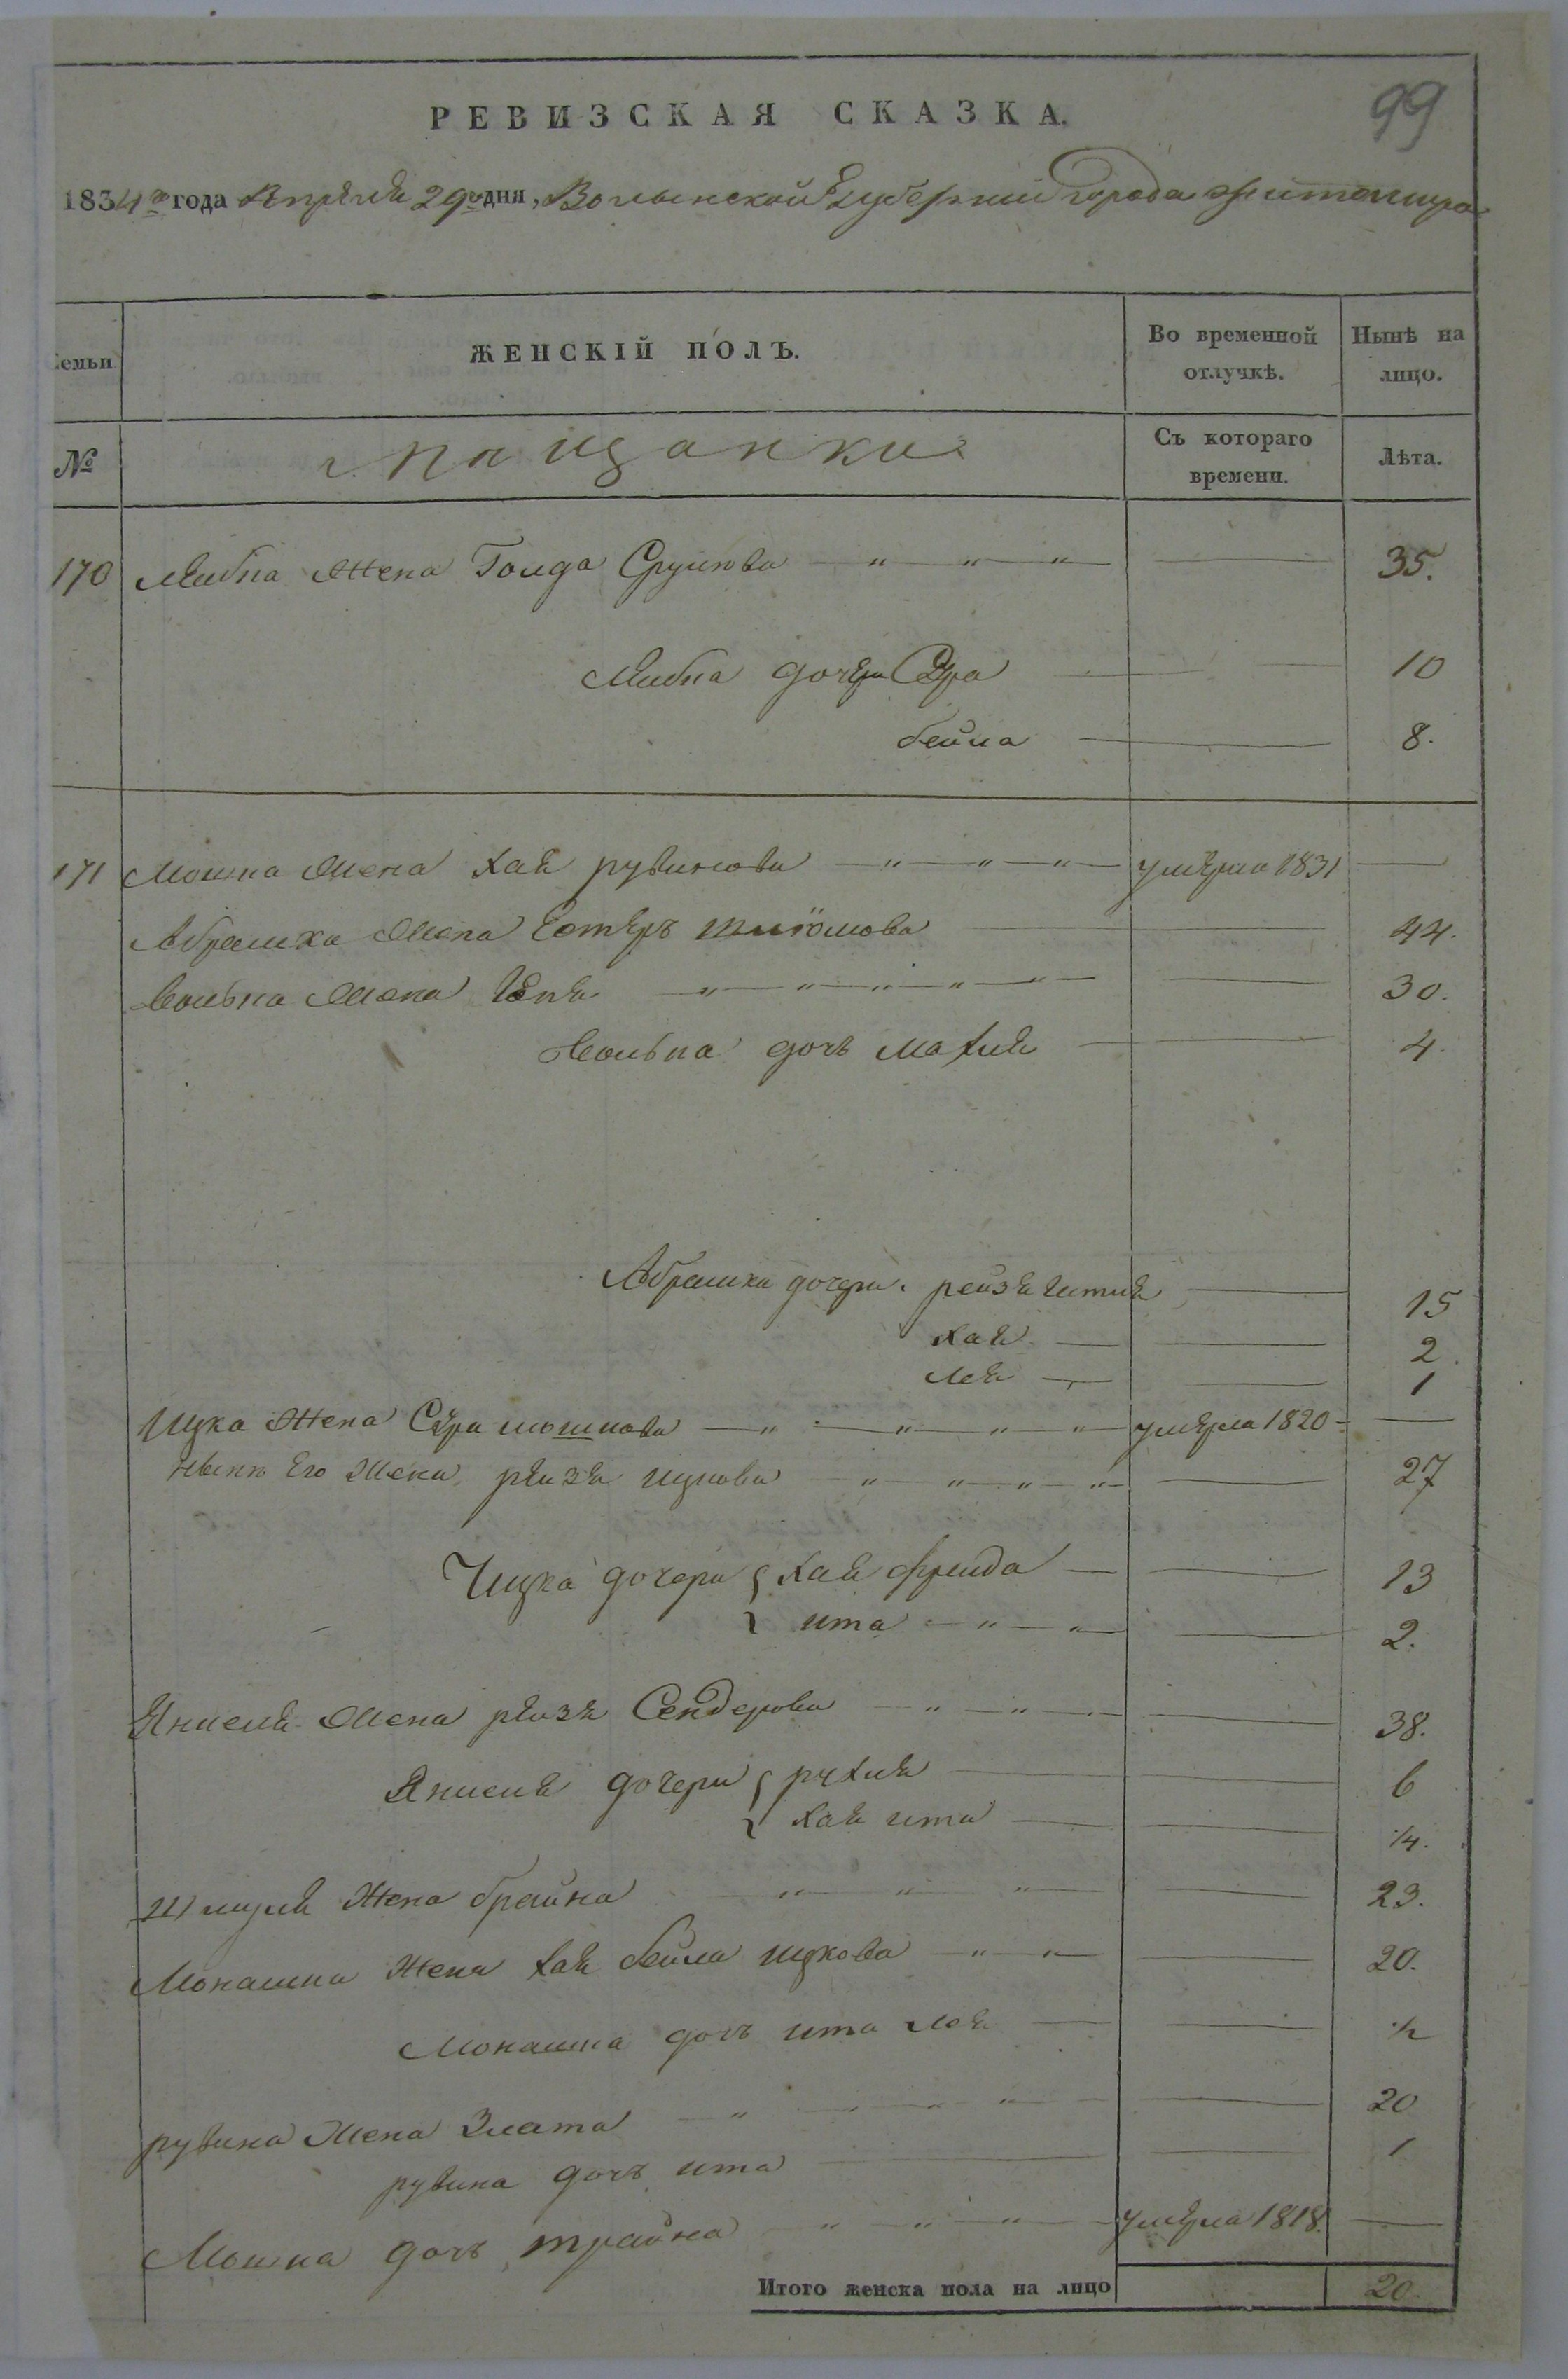 99
РЕВИЗСКАЯ СКАЗКА.
1834го года Апреля 29го дня, Волынской Губернии города Житомира
Семьи
ЖЕНСКІЙ ПОЛЪ.
Во временной отлучкѣ.
Нынѣ на лицо.
№
Съ котораго времени.
Лѣта.
170 Лейбна Жена Голда Срулюва — „ — „ — „ — 35.
Лейбна дочери Сура — 10
бейла — 8.
171 Мошка Жена хая рувинова — „ — „ — „ — умерла 1831 —
Абрамка Жена Естеръ — 44.
Волька Жена — „ — „ — „ — „ — „ — 30.
Волька дочь махля — 4.
Абрамка дочери рейзя гитля — 15
хая — 2
лея — 1
Ицка Жена Сура мошкова — „ — „ — „ — „ — умерла 1820 —
нынѣ Его Жена рейзя ицкова — „ — „ — „ — „ — 27
Ицка дочери хая фрейда — 13
ита — „ — „ — 2.
Янкеля Жена рейзя Сендерова — „ — „ — 38.
Янкеля дочери рухля — 6
хая ита — 1/4.
Шмуля Жена брайна — „ — „ — „ — 23.
Монашка Жена хая бейла ицкова — „ — „ — 20.
Монашка дочь ита лея — 1/2
рувина Жена Злата — „ — „ — „ — „ — 20
рувина дочь ита — 1
Мошка дочь трайна — „ — „ — „ — умерла 1818. —
Итого женска пола на лицо 20.